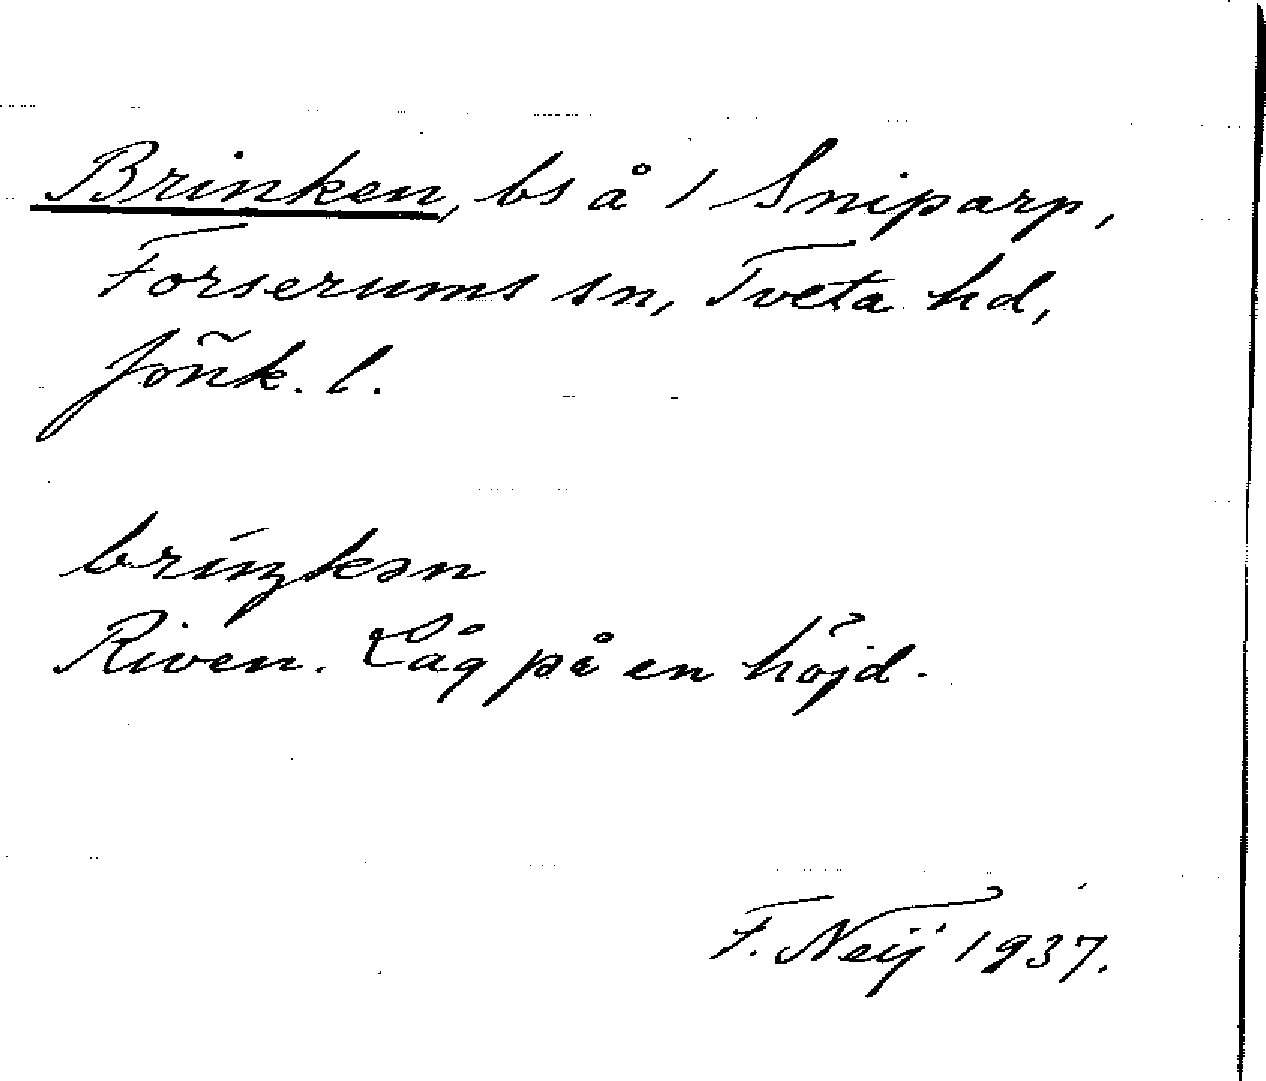 Brinken, bs å 1 Sniparp,
Forserums sn, Tveta hd,
Jönk. l.
bríŋkən
Riven. Låg på en höjd.
F. Neij 1937.